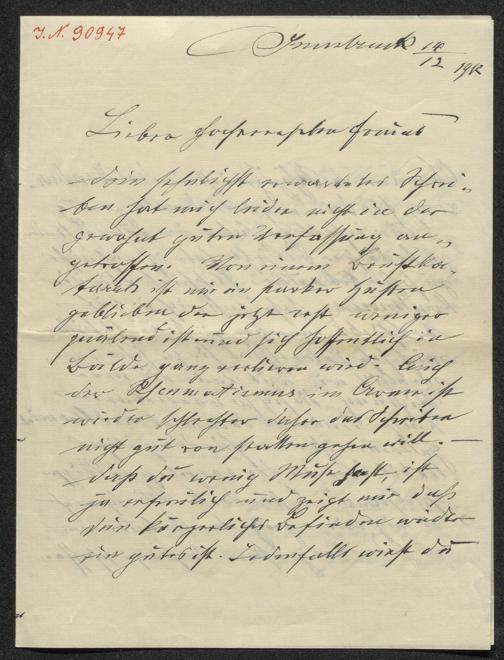 J.N. 90947
Innsbruck 14/12 912
Lieber hochverehrter Freund
Dein sehnlichst erwartetes Schrei-
ben hat mich leider nicht in der
gewohnt guten Verfassung an-
getroffen. Von einem Brustka-
tarrh ist mir ein starker Husten
geblieben der jetzt erst weniger
quälend ist und sich hoffentlich in
Bälde ganz verlieren wird. Auch
der Rheumatismus im Arme ist
wieder schlechter daher das Schreiben
nicht gut von statten gehen will. —
Daß du wenig Muße hast, ist
ja erfreulich und zeigt mir daß
dein körperliches Befinden wieder
ein gutes ist. Jedenfalls wirst du